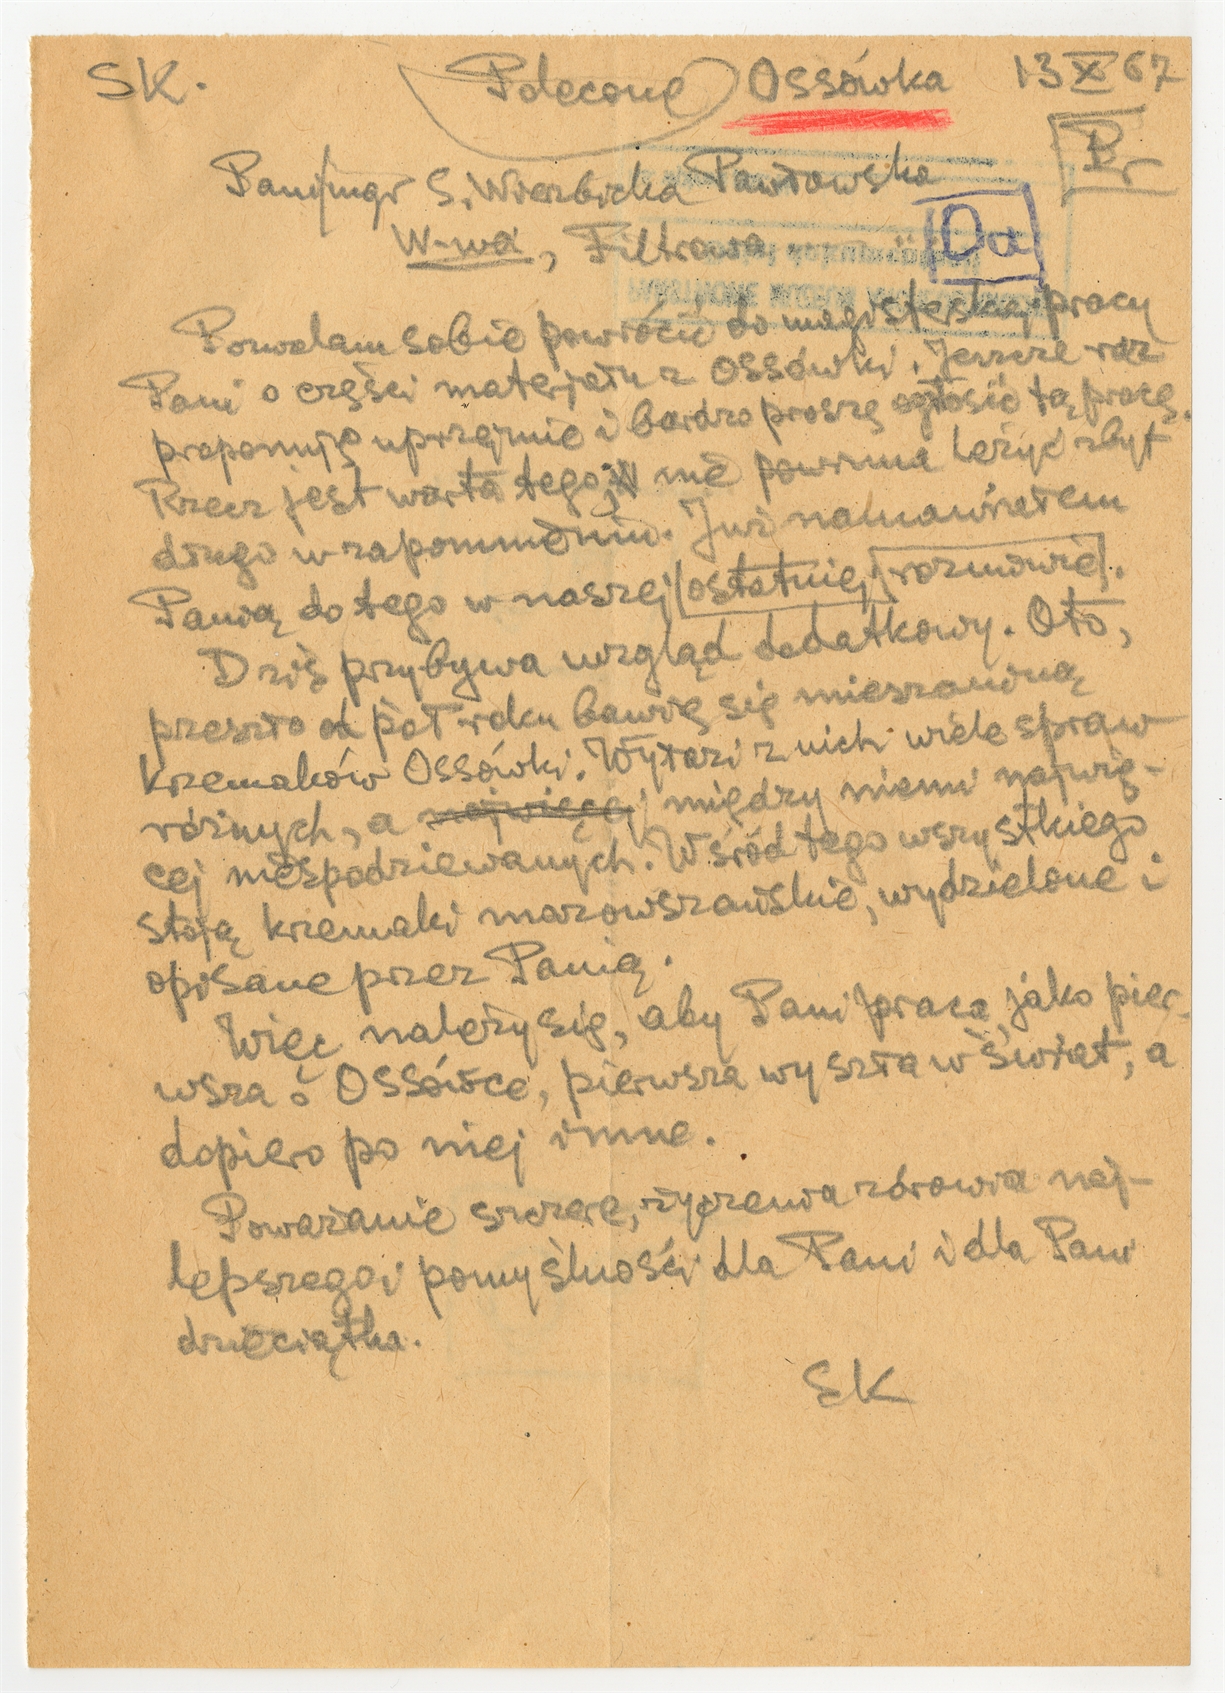 SK. Polecone Ossówka 13 XI 67
Pr
Pani mgr S. Wierzbicka Pawłowska
W-wa, Filtrowa
Od
Pozwalam sobie powrócić do magisterskiej pracy
Pani o części materjału z Ossówki. Jeszcze raz
proponuję uprzejmie i bardzo proszę ogłosić tą pracę.
Rzecz jest warta tego, nie powinna leżyć zbyt
długo w zapomnieniu. Już namawiałem
Panią do tego w naszej ostatniej rozmowie.
Dziś przybywa wzgląd dodatkowy. Oto,
przeszło od pół roku bawię się mieszaniną
krzemaków Ossówki. Wyłazi z nich wiele spraw
różnych, a najwięcej między niemi najwię-
cej niespodziewanych. Wśród tego wszystkiego
stoją krzemaki mazowszańskie, wydzielone i
opisane przez Panią.
Więc należy się, aby Pani praca, jako pier-
wsza o Ossówce, pierwsza wyszła w świat, a
dopiero po niej inne.
Poważanie szczere, życzenia zdrowia naj-
lepszego i pomyślności dla Pani i dla Pani
dzieciątka.
SK